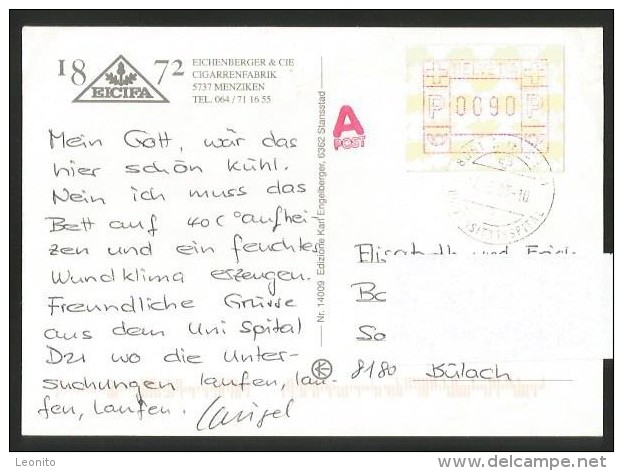 18 72
EICIFA
EICHENBERGER & CIE
CIGARRENFABRIK
5737 MENZIKEN
TEL. 064 / 71 16 55
Mein Gott, wär das
hier schön kühl.
Nein ich muss das
Bett auf 40 C° aufhei-
zen und ein feuchtes
Wundklima erzeugen.
Freundliche Grüsse
aus dem Uni Spital
D21 wo die Unter-
suchungen laufen, lau-
fen, laufen.
Nr. 14009 Edizione Karl Engelberger, 6362 Stansstad
A
POST
HELVETIA
P 0090 P
Elisabeth und
Bc
So
8180 Bülach
Leonito
delcampe.net